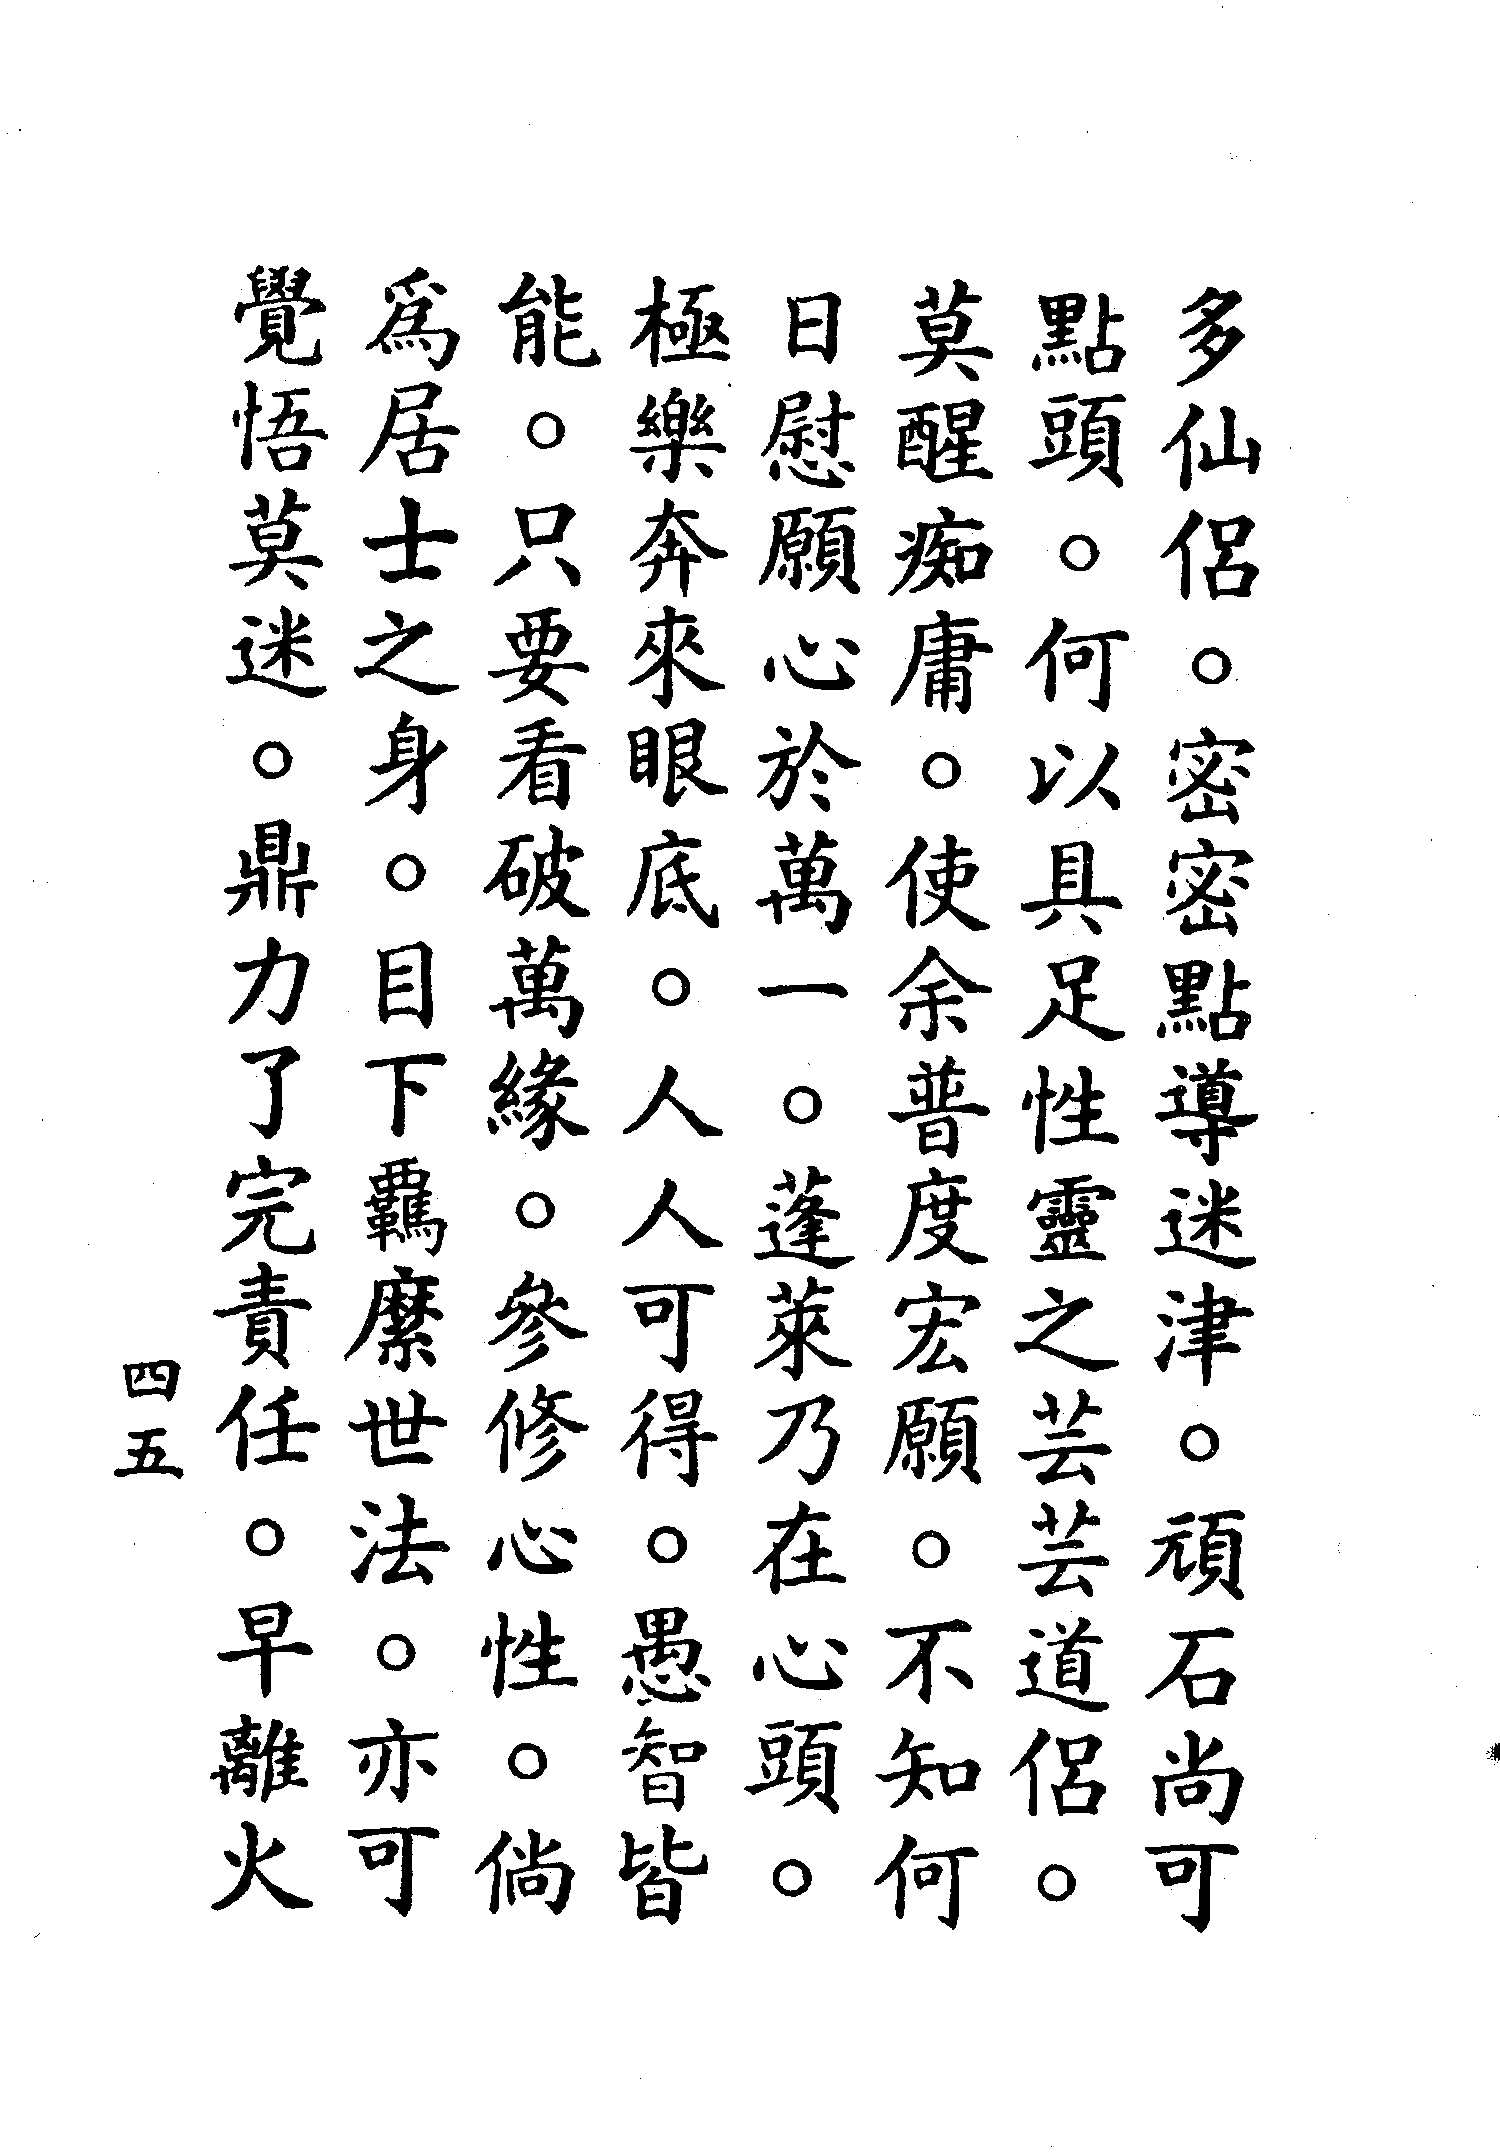 多仙侶。密密點導迷津。頑石尚可
點頭。何以具足性靈之芸芸道侶。
莫醒痴庸。使余普度宏願。不知何
日慰願心於萬一。蓬萊乃在心頭。
極樂奔來眼底。人人可得。愚智皆
能。只要看破萬緣。參修心性。倘
爲居士之身。目下羈縻世法。亦可
覺悟莫迷。鼎力了完責任。早離火
四五